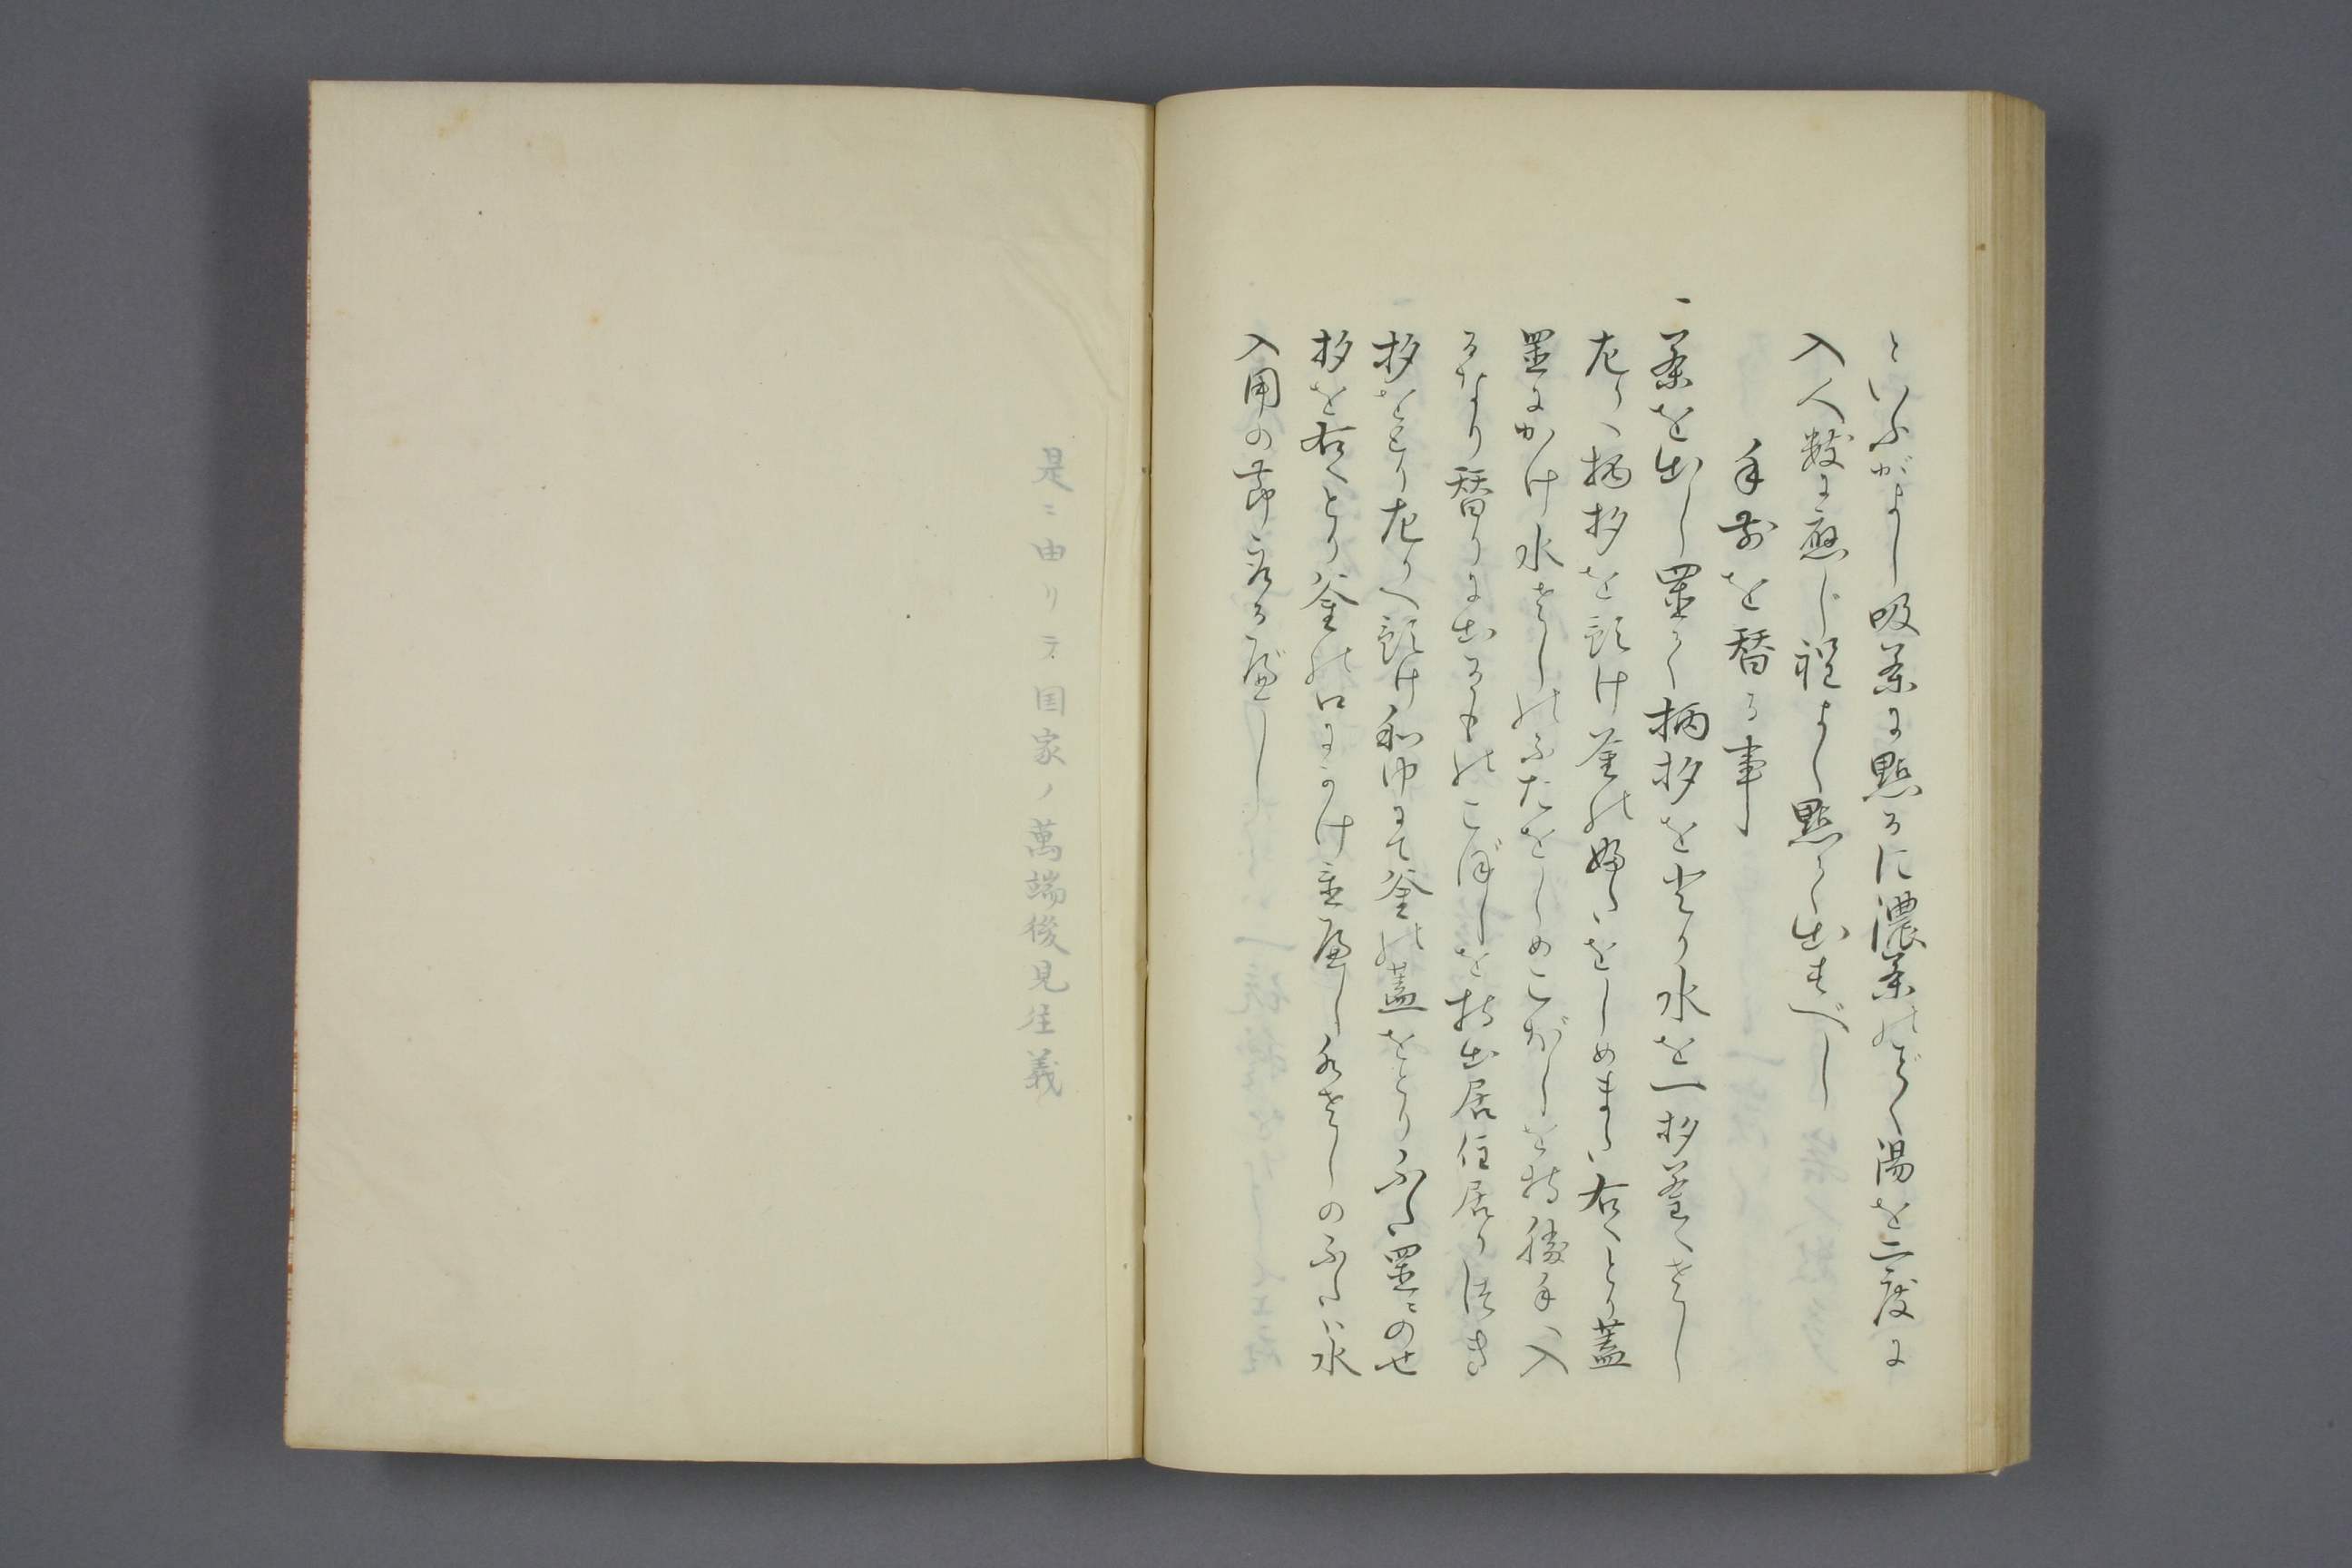 といふがよし吸茶に點るに濃茶のごとく湯を二度に
入人数に應じ程よく點て出すべし
手前を替る事
一茶を出し置て柄杓をとり水を一杓釜へさし
左りへ柄杓を預け釜の婦たをしめまた右へとり蓋
置にかけ水さしのふたをしめこぼしを持勝手へ入
るなり替りに出るものこぼしを持出居住居りはき
杓をとり左りへ預け和巾にて釜の蓋をとりふた置にのせ
杓を右へとり釜の口にかけ置扁し水さしのふたは水
入用の節取る扁し
是ニ由リテ国家ノ萬端後見往義